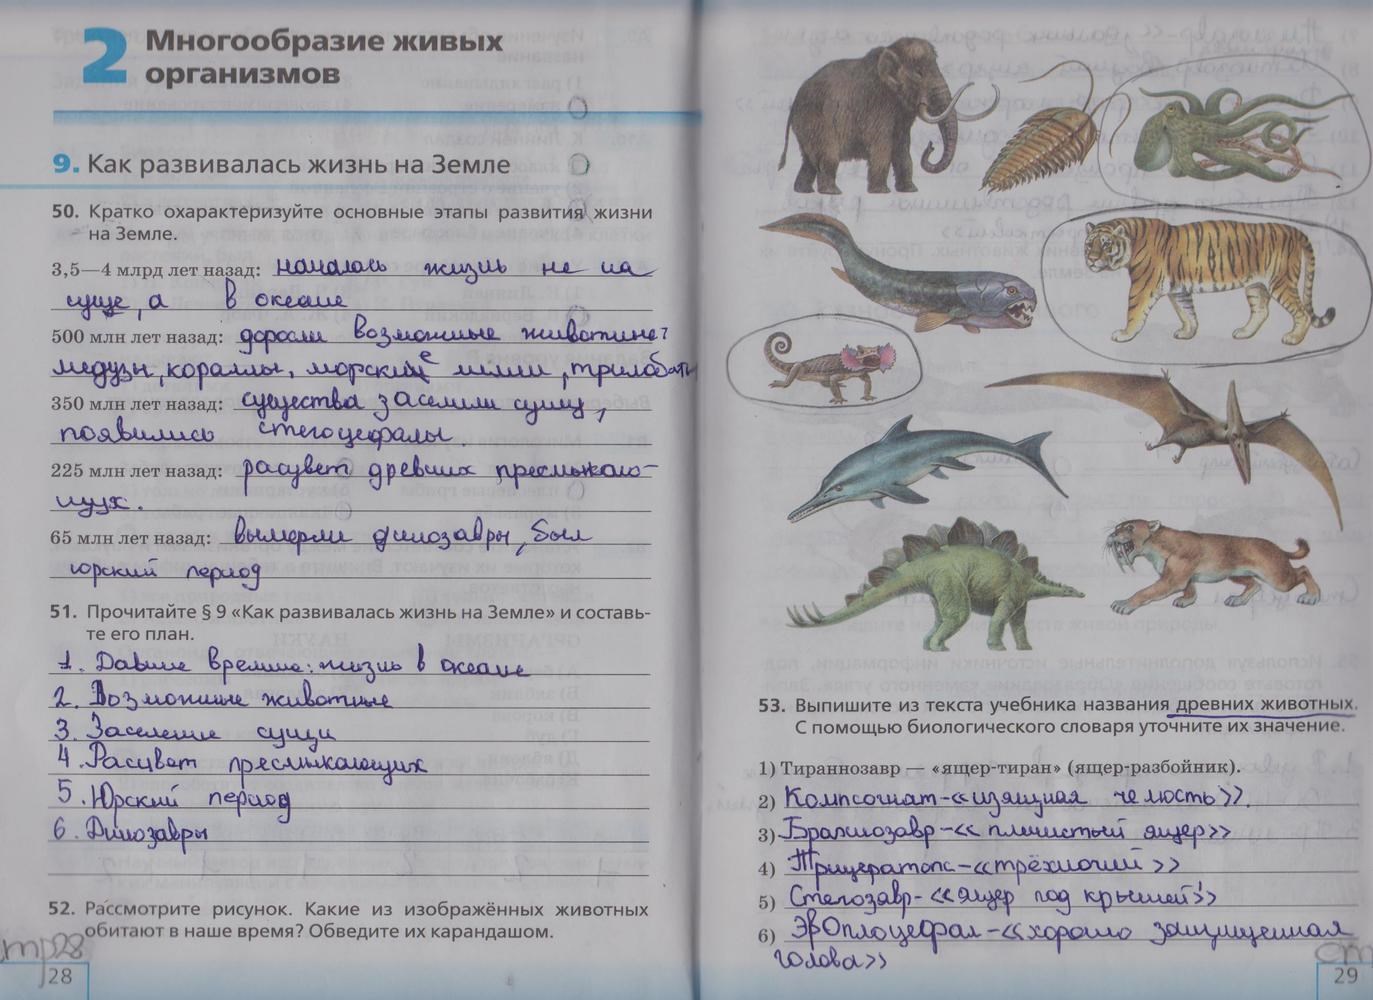 2 Многообразие живых
организмов
9. Как развивалась жизнь на Земле
50. Кратко охарактеризуйте основные этапы развития жизни
на Земле.
3,5—4 млрд лет назад: началась жизнь не на
суще, а в океане
500 млн лет назад: доросли возможные животные:
медузы, кораллы, морские лилии, трилобиты
350 млн лет назад: существа заселили сушу,
появились стегоцефалы.
225 млн лет назад: расцвет древних пресмыкаю-
щихся.
65 млн лет назад: вымерли динозавры, был
юрский период
51. Прочитайте § 9 «Как развивалась жизнь на Земле» и составь-
те его план.
1. Давние времена: жизнь в океане
2. Возможные животные
3. Заселение суши
4. Расцвет пресмыкающихся
5. Юрский период
6. Динозавры
52. Рассмотрите рисунок. Какие из изображённых животных
обитают в наше время? Обведите их карандашом.
стр28
28
53. Выпишите из текста учебника названия древних животных.
С помощью биологического словаря уточните их значение.
1) Тираннозавр — «ящер-тиран» (ящер-разбойник).
2) Компсогнат-«изящная челюсть».
3) Брахиозавр-«плечистый ящер»
4) Трицератопс-«трёхрогий»
5) Стегозавр-«ящер под крышей»
6) Эвоплоцефал-«хорошо защищенная
голова»
ст
29